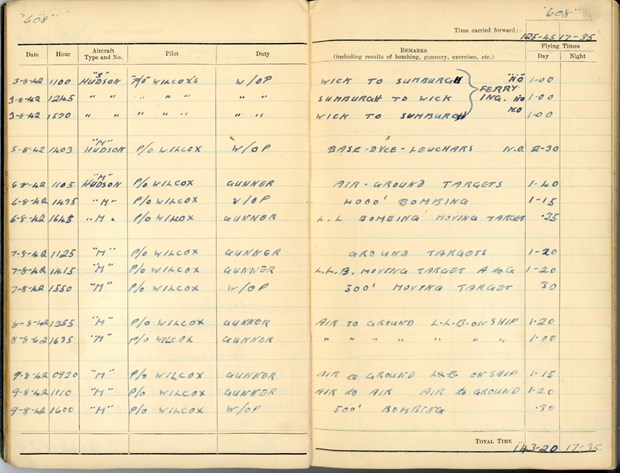 "608"
"608"
Time carried forward:- 125-45 17-35
Date Hour Aircraft Type and No. Pilot Duty Remarks (including results of bombing, gunnery, exercises, etc.) Flying Times Day Night
3-8-42 1100 "S" HUDSON P/O WILCOX W/OP WICK TO SUMBURGH NO 1-00
3-8-42 1245 " " " " " " " SUMBURGH TO WICK FERRYING. NO 1-00
3-8-42 " " " " " " " WICK TO SUMBURGH NO 1-00
5-8-42 1403 "M" HUDSON P/O WILCOX W/OP BASE-DYCE-LEUCHARS N.O. 2-30
6-8-42 1105 "M" HUDSON P/O WILCOX GUNNER AIR-GROUND TARGETS 1-40
6-8-42 1435 "M" P/O WILCOX GUNNER 4000' BOMBING 1-15
6-8-42 1645 "M" P/O WILCOX GUNNER L.L. BOMBING MOVING TARGET .35
7-8-42 1125 "M" P/O WILCOX GUNNER GROUND TARGETS 1-20
7-8-42 1415 "M" P/O WILCOX GUNNER L.L.B. MOVING TARGET A to G 1-20
7-8-42 1550 "M" P/O WILCOX W/OP 500' MOVING TARGET 30
8-8-42 1355 "M" P/O WILCOX GUNNER AIR TO GROUND L.L.B-ON SHIP 1-20
8-8-42 1635 "M" P/O WILCOX GUNNER " " " " " " 1-00
9-8-42 0930 "M" P/O WILCOX GUNNER AIR to GROUND LLB ON SHIP 1-15
9-8-42 1110 "M" P/O WILCOX GUNNER AIR to AIR AIR to GROUND 1-20
9-8-42 1600 "M" P/O WILCOX W/OP 500' BOMBING .30
Total Time .. 143-20 17-35